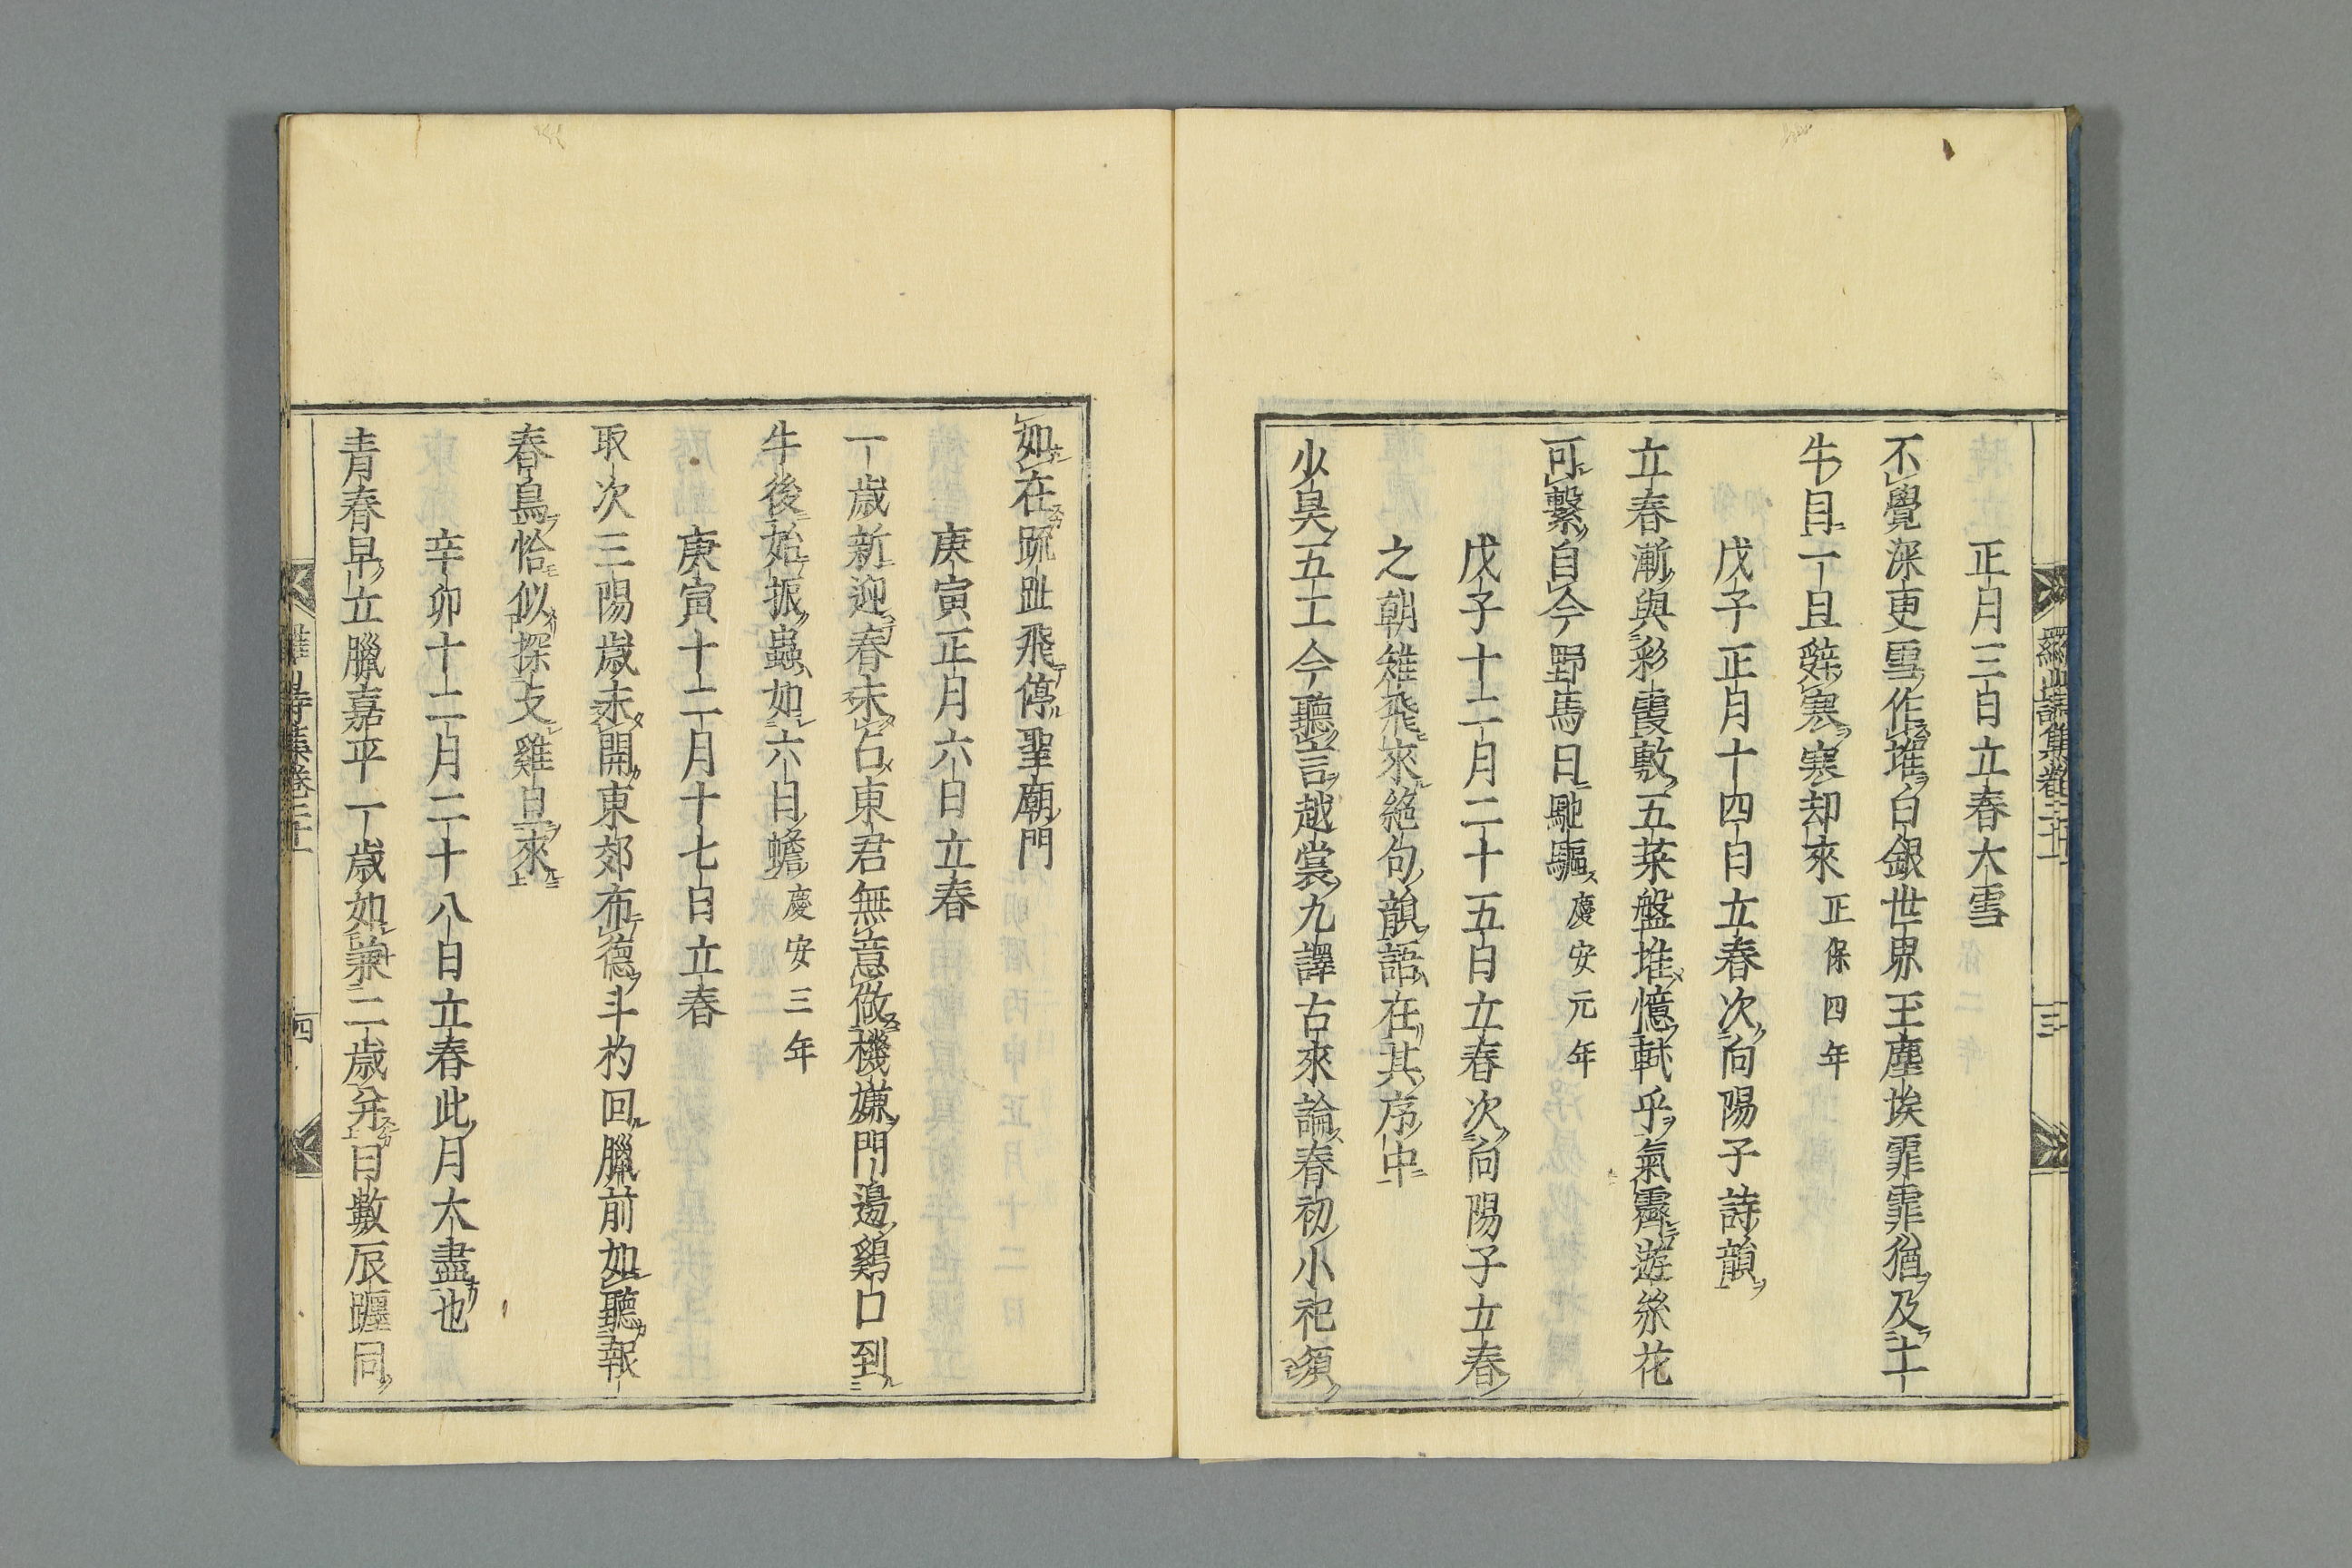 羅山詩集卷三十一
三
正月三日立春大雪
不覺深更雪作堆白銀世界玉塵埃霏霏猶及土
牛目一旦辭寒寒却來 正保四年
戊子正月十四日立春次向陽子詩韻
立春漸與彩霞敷五菜盤堆憶軾乎氣霽遊絲花
可繫自今野馬日馳驅 慶安元年
戊子十二月二十五日立春次向陽子立春
之朝雉飛來絶句韻語在其序中
少昊五工今聽言越裳九譯古來論春初小祀須
如在疏趾飛停聖廟門
庚寅正月六日立春
一歳新迎春未占東君無意做機嫌門邊鷄口到
牛後始振蟲如六日蟾 慶安三年
庚寅十二月十七日立春
取次三陽歳未開東郊布德斗杓回臘前如聽報
春鳥恰似探支雞旦來
辛卯十二月二十八日立春此月大盡也
青春早立臘嘉平一歳如兼二歳并日數辰躔同
羅山詩集卷三十一
四